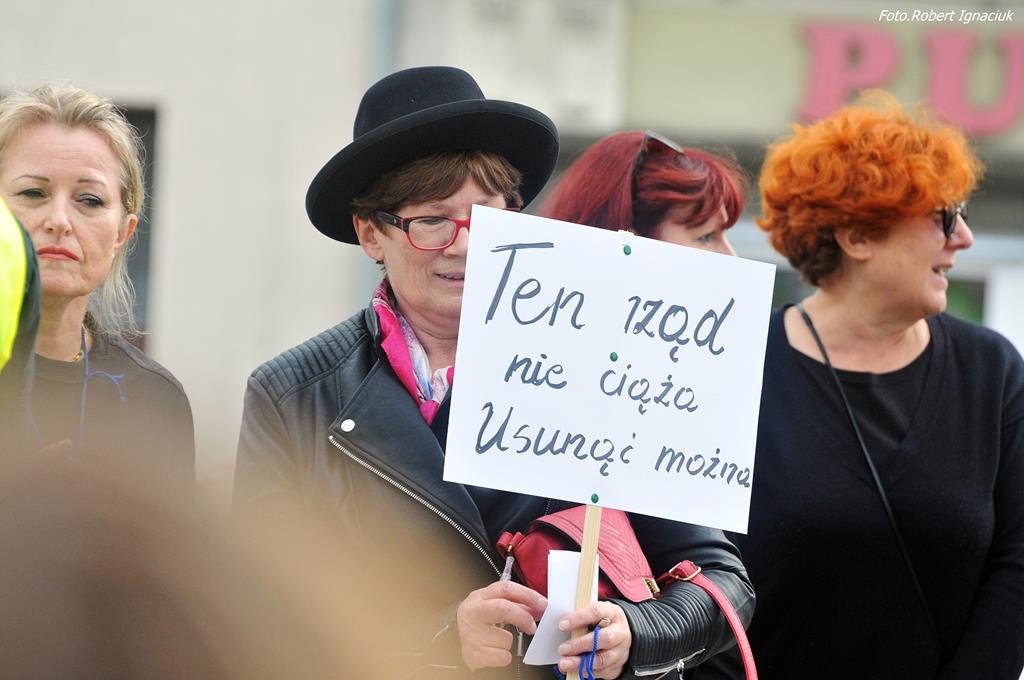 Foto.Robert Ignaciuk
PU
Ten rząd
nie ciąża
Usunąć można